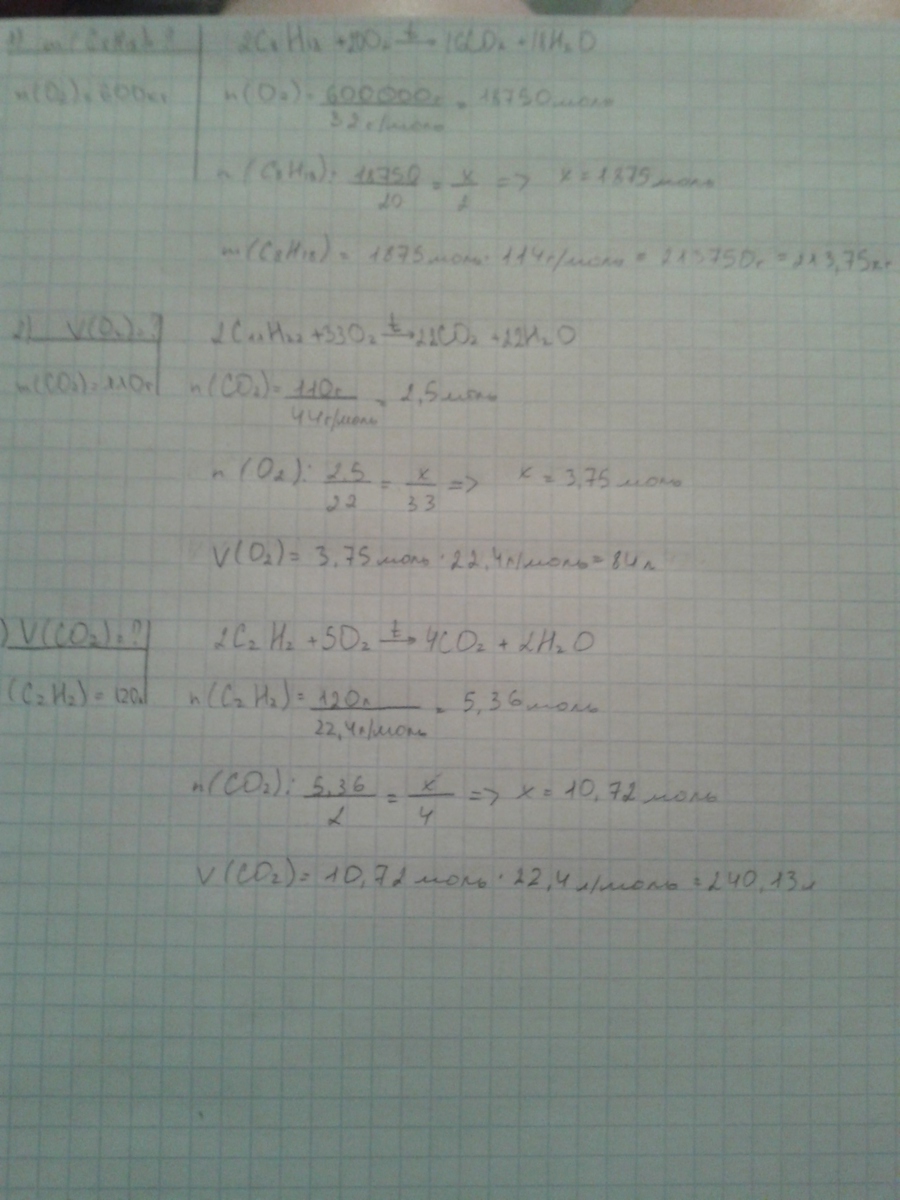 1) m(C₈H₁₈)-? 2C₈H₁₈ + O₂ →ᵗ 16CO₂ + 18H₂O
m(O₂) = 600кг n(O₂) = 600000г / 32 г/моль = 18750 моль
n(C₈H₁₈): 18750/20 = x/2 => x = 1875 моль
m(C₈H₁₈) = 1875 моль · 114 г/моль = 213750г = 213,75кг
2) V(O₂) = ? 2C₁₁H₂₂ + 33O₂ →ᵗ 22CO₂ + 22H₂O
m(CO₂) = 110г n(CO₂) = 110г / 44г/моль = 2,5 моль
n(O₂): 2,5/22 = x/33 => x = 3,75 моль
V(O₂) = 3,75 моль · 22,4л/моль = 84л
) V(CO₂) = ? 2C₂H₂ + 5O₂ →ᵗ 4CO₂ + 2H₂O
(C₂H₂) = 120л n(C₂H₂) = 120л / 22,4л/моль = 5,36 моль
n(CO₂): 5,36/2 = x/4 => x = 10,72 моль
V(CO₂) = 10,72 моль · 22,4 л/моль = 240,13л